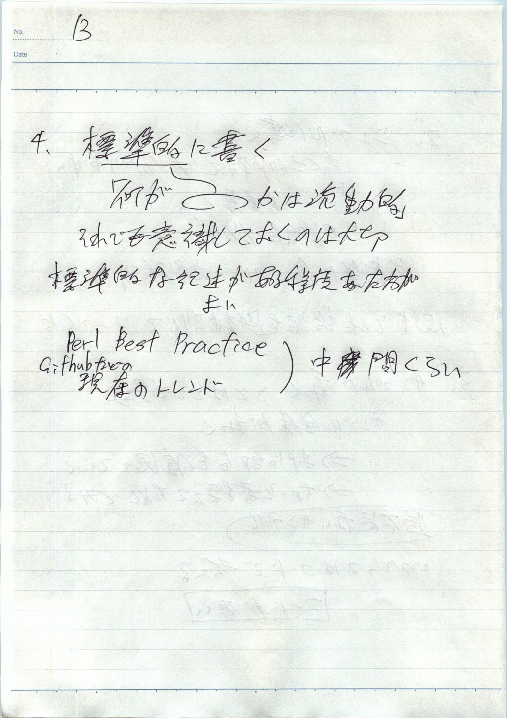 No. 13
Date
4. 標準的に書く
「何が
かは流動的」
それでも意識しておくのは大切
標準的な記述がある程度あった方が
よい
Perl Best Practice
Githubなどの
現在のトレンド
中間ぐらい